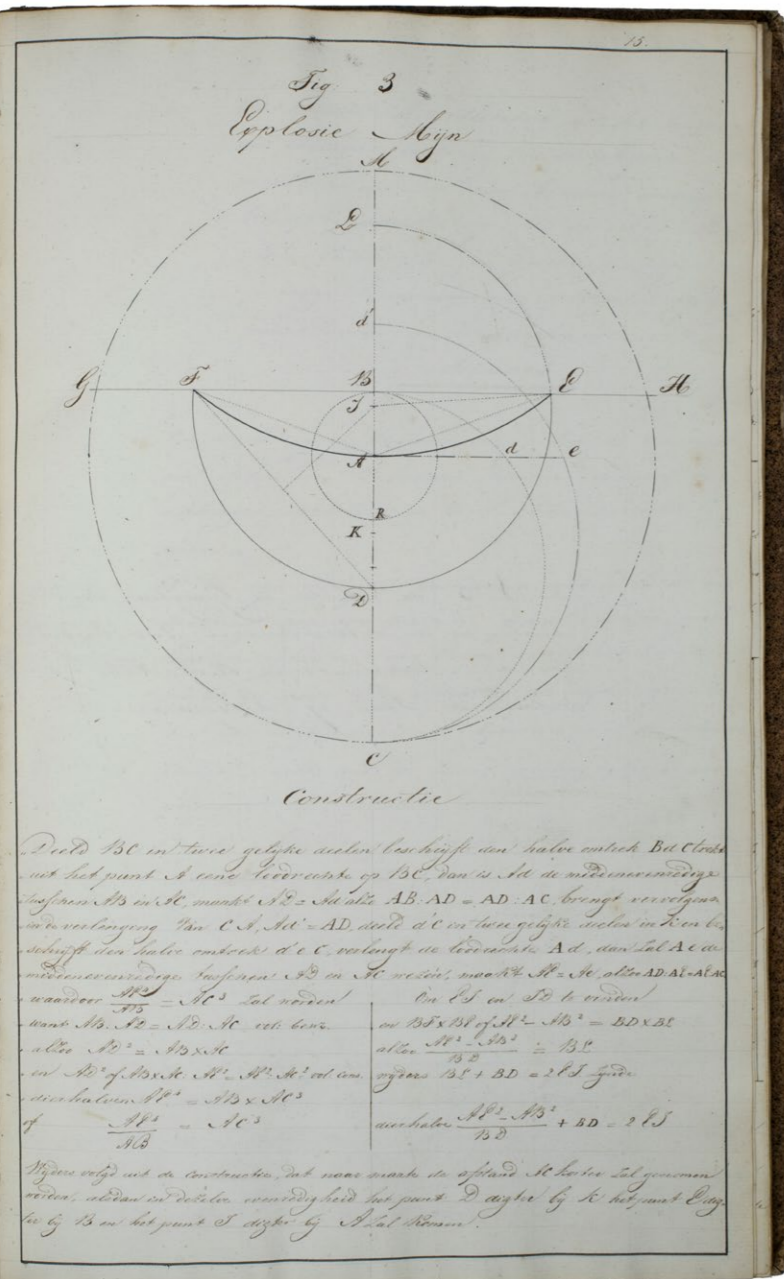 15.
Fig 3
Explosie Mijn
M
L
d'
G F B E H
I
A d e
R
K
D
C
Constructie
Deeld BC in twee gelyke deelen beschryft den halve omtrek BdC trekt
uit het punt A eene loodrechte op BC, dan is Ad de middenevenredige
tusschen AB en AC, maakt AD = Ad alzo AB:AD = AD:AC, brengt vervolgens
in de verlenging van CA, Ad' = AD, deeld d'C in twee gelyke deelen in K en be-
schryft den halve omtrek d'eC, verlengt de loodrechte Ad, dan zal Ae de
middenevenredige tusschen AD en AC wezen, maakt AE = Ae, alzo AD:AE=AE:AC
waardoor AE⁴/AB = AC³ zal worden
want AB:AD = AD:AC vol: cons.
alzo AD² = AB×AC
en AD² of AB×AC AE² = AE² AC² vol. cons.
dierhalven AE⁴ = AB × AC³
of AE⁴/AB = AC³
Om EI en ID te vinden
en BF×BE of AE² − AB² = BD×BL
alzo AE² − AB²/BD = BL
wyders BL + BD = 2EI zynde
dierhalve AE² − AB²/BD + BD = 2EI
Wyders volgd uit de constructie, dat naar mate de afstand AC korter zal genomen
worden, alsdan in dezelve evenredigheid het punt D digter by K het punt E dig-
ter by B en het punt I digter by A zal komen.